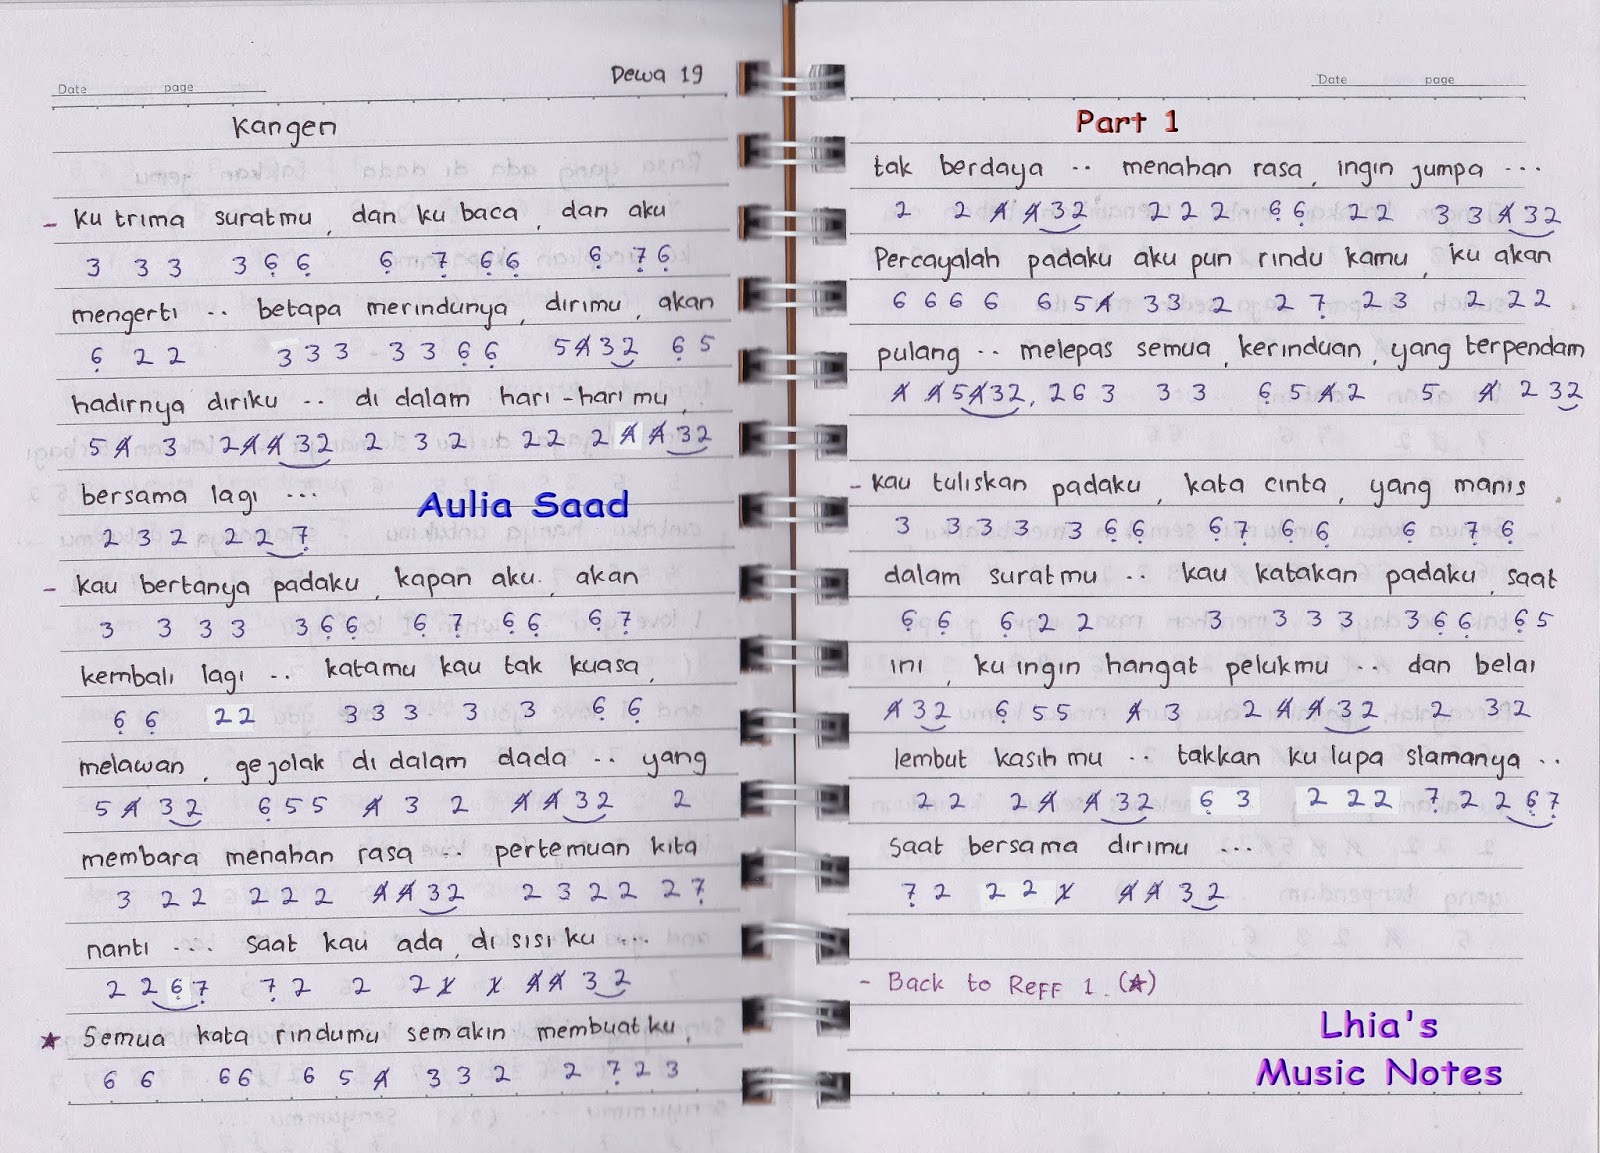 Date page
Dewa 19
Kangen
- ku trima suratmu, dan ku baca, dan aku
3 3 3 3 6̣ 6̣ 6̣ 7̣ 6̣ 6̣ 6̣ 7̣ 6̣
mengerti .. betapa merindunya, dirimu, akan
6̣ 2 2 3 3 3 3 3 6̣ 6̣ 5 4̸ 3 2 6̣ 5
hadirnya diriku .. di dalam hari-hari mu,
5 4̸ 3 2 4̸ 4̸ 3 2 2 3 2 2 2 2 4̸ 4̸ 3 2
bersama lagi ...
2 3 2 2 2 7̣
Aulia Saad
- kau bertanya padaku, kapan aku, akan
3 3 3 3 3 6̣ 6̣ 6̣ 7̣ 6̣ 6̣ 6̣ 7̣
kembali lagi .. katamu kau tak kuasa,
6̣ 6̣ 2 2 3 3 3 3 3 6̣ 6̣
melawan, gejolak di dalam dada .. yang
5 4̸ 3 2 6̣ 5 5 4̸ 3 2 4̸ 4̸ 3 2 2
membara menahan rasa ... pertemuan kita
3 2 2 2 2 2 4̸ 4̸ 3 2 2 3 2 2 2 7̣
nanti ... saat kau ada, di sisi ku ...
2 2 6̣ 7̣ 7̣ 2 2 2 1̸ 1̸ 4̸ 4̸ 3 2
★ Semua kata rindumu semakin membuatku,
6 6 6 6 6 5 4̸ 3 3 2 2 7̣ 2 3
Date page
Part 1
tak berdaya .. menahan rasa, ingin jumpa ...
2 2 4̸ 4̸ 3 2 2 2 2 6̣ 6̣ 2 2 3 3 4̸ 3 2
Percayalah padaku aku pun rindu kamu, ku akan
6 6 6 6 6 5 4̸ 3 3 2 2 7̣ 2 3 2 2 2
pulang .. melepas semua, kerinduan, yang terpendam
4̸ 4̸ 5 4̸ 3 2, 2 6 3 3 3 6̣ 5 4̸ 2 5 4̸ 2 3 2
- kau tuliskan padaku, kata cinta, yang manis
3 3 3 3 3 6̣ 6̣ 6̣ 7̣ 6̣ 6̣ 6̣ 7̣ 6̣
dalam suratmu .. kau katakan padaku, saat
6̣ 6̣ 6̣ 2 2 3 3 3 3 3 6̣ 6̣ 6̣ 5
ini, ku ingin hangat pelukmu .. dan belai
4̸ 3 2 6̣ 5 5 4̸ 3 2 4̸ 4̸ 3 2 2 3 2
lembut kasih mu .. takkan ku lupa slamanya ..
2 2 2 4̸ 4̸ 3 2 6̣ 3 2 2 2 7̣ 2 2 6̣ 7̣
saat bersama dirimu ...
7̣ 2 2 2 1̸ 4̸ 4̸ 3 2
- Back to Reff 1. (★)
Lhia's
Music Notes